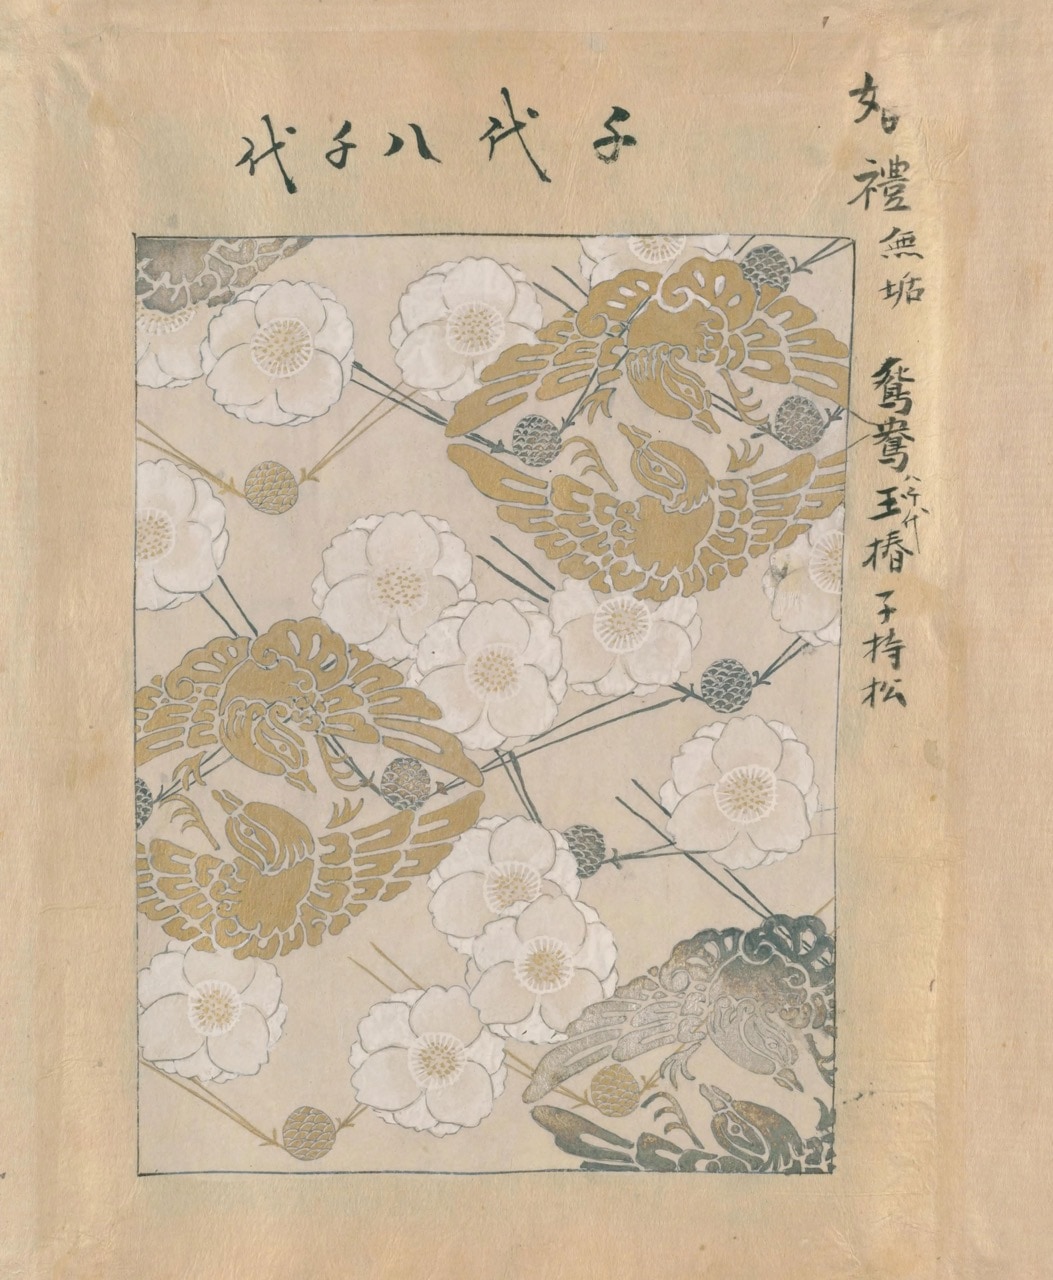 千代八千代
婚禮無垢 鴛鴦玉椿子持松
八千代